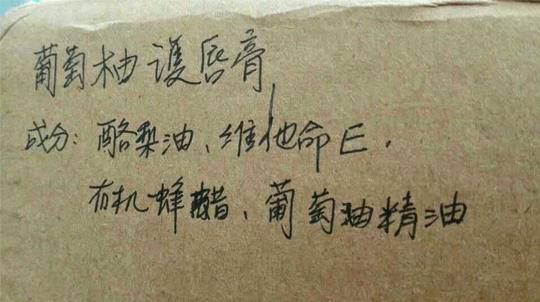 葡萄柚護唇膏
成分：酪梨油、维他命E.
有机蜂醋、葡萄油精油